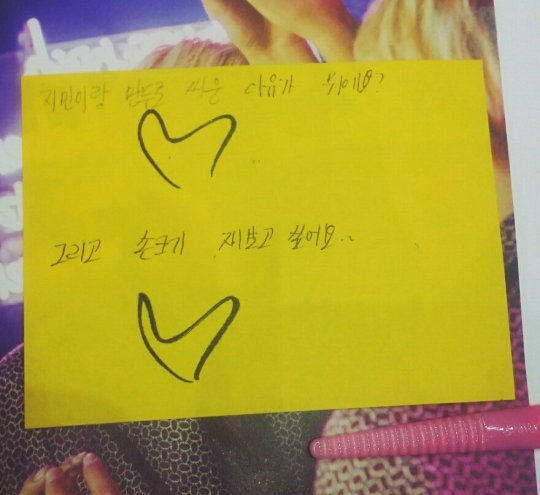 지민이랑 만두로 싸운 이유가 뭐에요?
그리고 손크기 재보고 싶어요..